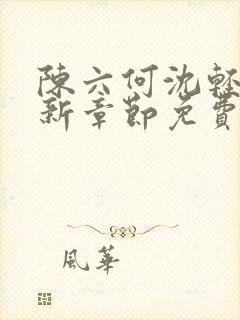 陳六何沈輕
新章節免費
風華